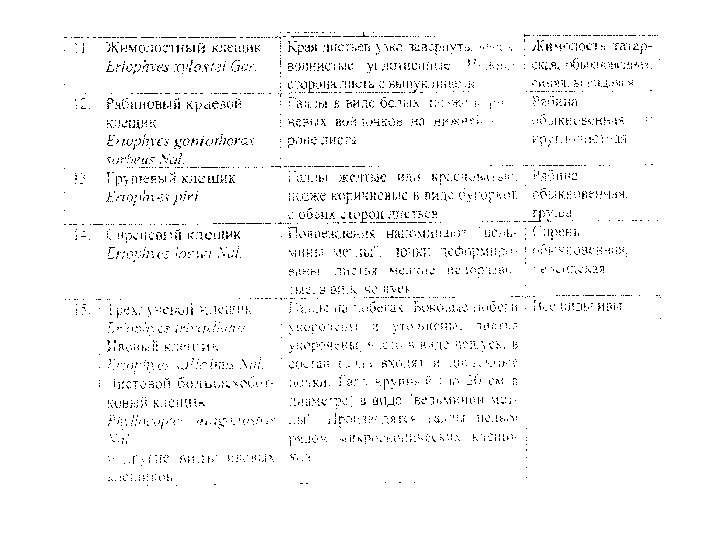 11. Жимолостный клещик
Eriophyes xylostei Gar.
Края листьев узко завернуты,
волнистые утолщенные.
сторона листа с выпуклинами
Жимолость татар-
ская, обыкновенная,
12. Рябиновый краевой
клещик
Eriophyes goniothorax
sorbeus Nal.
Галлы в виде белых, позже
войлочков на нижней
роне листа
Рябина
обыкновенная
круглолистная
13. Грушевый клещик
Eriophyes piri
Галлы желтые или красноватые,
позже коричневые в виде бугорков
с обеих сторон листьев
Рябина
обыкновенная,
груша
14. Сиреневый клещик
Eriophyes lowei Nal.
Повреждения напоминают "ведь-
мины метлы", почки деформиро-
ваны, листья мелкие недоразви-
тые, в виде чешуек
Сирень
обыкновенная,
15. Трехлучевой клещик
Eriophyes triradiatus
Ивовый клещик
Eriophyes salicinus Nal.
Листовой большехобот-
ковый клещик
Phyllocoptes magnirostris
Nal.
и другие виды ивовых
клещиков
Галлы на побегах. Боковые побеги
укорочены и утолщены, листья
укорочены, часто в виде чешуек, в
состав галла входят и
почки. Галл крупный (до 20 см в
диаметре) в виде "ведьминой мет-
лы". Производятся галлы целым
рядом микроскопических клещи-
ков
Все виды ивы